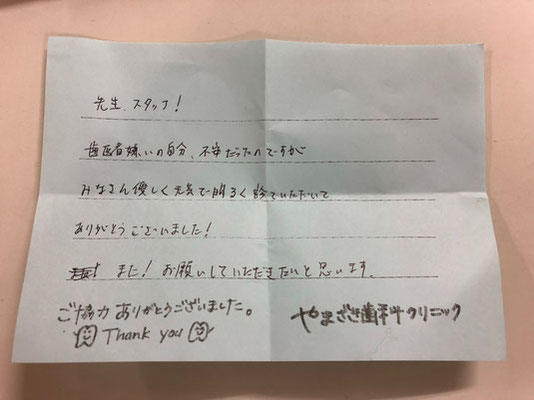 先生、スタッフ!
歯医者嫌いの自分、不安だったのですが
みなさん優しく元気で明るく診ていただいて
ありがとうございました!
また! お願いしていただきたいと思います。
ご協力ありがとうございました。
Thank you
やまざき歯科クリニック